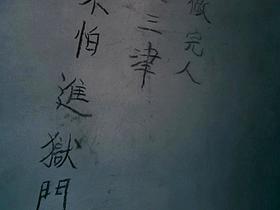 做完人
三津
不怕進獄門